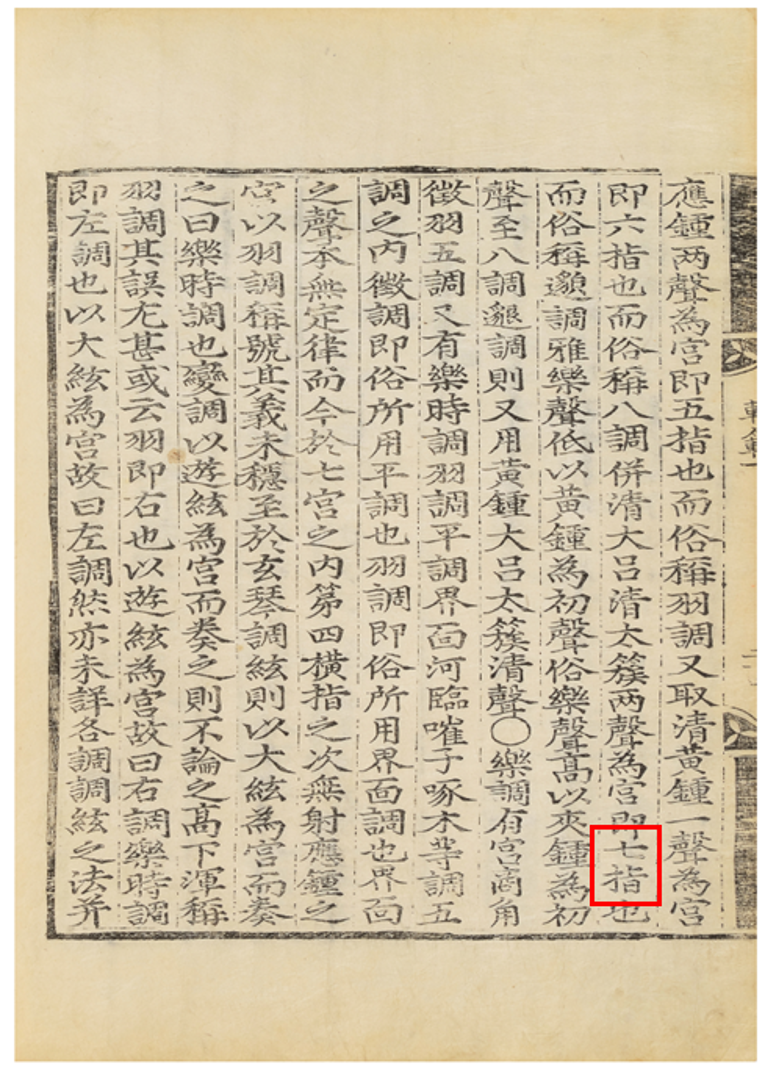 應鍾两聲為宮即五指也而俗稱羽調又取清黃鍾一聲為宮
即六指也而俗稱八調併清大呂清太簇两聲為宮即七指也
而俗稱邈調雅樂聲低以黃鍾為初聲俗樂聲髙以夾鍾為初
聲至八調邈調則又用黃鍾大呂太簇清聲〇樂調有宮商角
徵羽五調又有樂時調羽調平調界面河臨嗺子啄木等調五
調之内徵調即俗所用平調也羽調即俗所用界面調也界面
之聲本無定律而今於七宮之内第四橫指之次無射應鍾之
宮以羽調稱號其義未穩至於玄琴調絃則以大絃為宮而奏
之曰樂時調也變調以遊絃為宮而奏之則不論之髙下渾稱
羽調其誤尤甚或云羽即右也以遊絃為宮故曰右調樂時調
即左調也以大絃為宮故曰左調然亦未詳各調調絃之法并